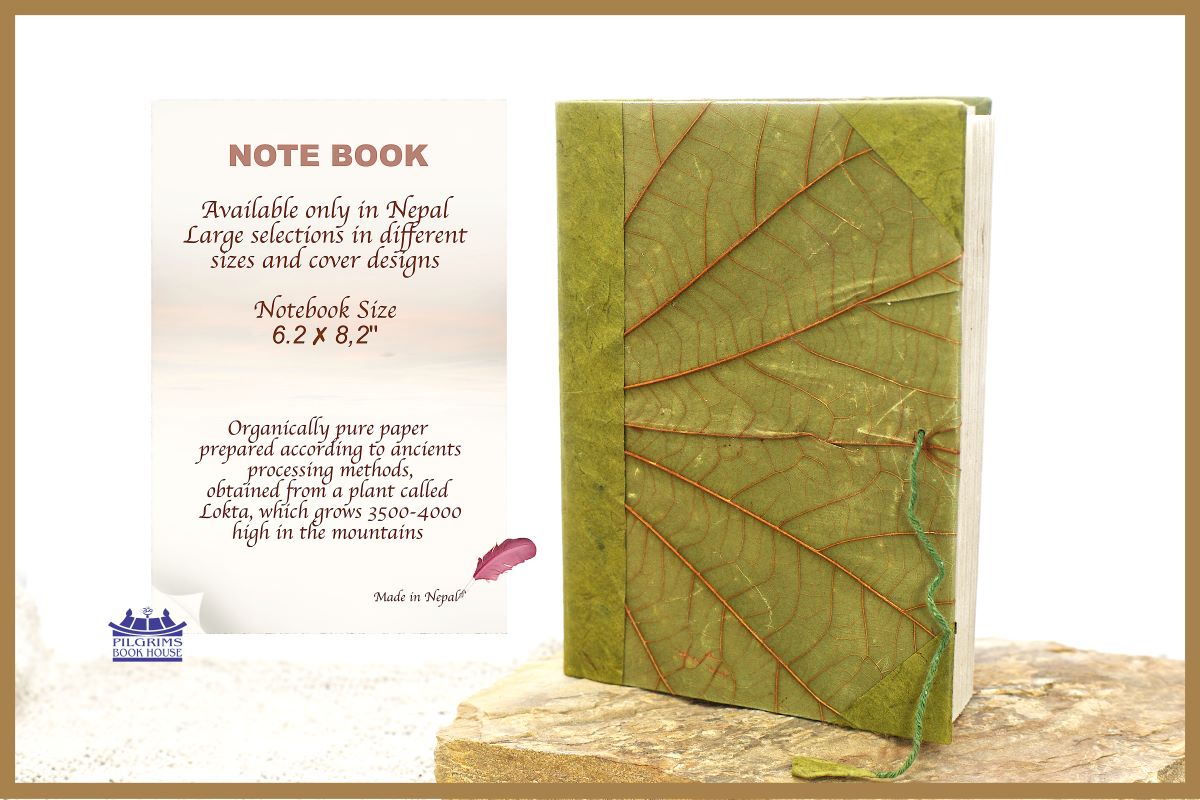 NOTE BOOK
Available only in Nepal
Large selections in different
sizes and cover designs
Notebook Size
6.2 ✗ 8,2"
Organically pure paper
prepared according to ancients
processing methods,
obtained from a plant called
Lokta, which grows 3500-4000
high in the mountains
Made in Nepal
PILGRIMS
BOOK HOUSE